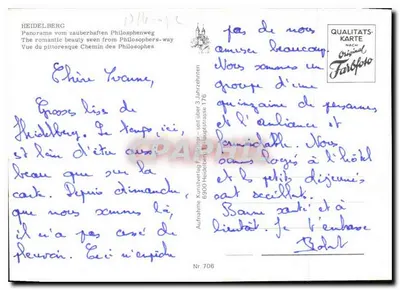 HEIDELBERG
Panorama vom zauberhaften Philosophenweg
The romantic beauty seen from Philosophers-way
Vue du pittoresque Chemin des Philosophes
Chère Yvonne,
Grosses bises de
Heidelberg. Le temps, ici,
est loin d'être aussi
beau que sur la
carte. Depuis dimanche,
que nous sommes là,
il n'a pas cessé de
pleuvoir. Ceci n'empêche
pas de nous
amuser beaucoup.
Nous sommes un
groupe d'une
quinzaine de personnes
et l'ambiance est
formidable. Nous
sommes logés à l'hôtel
et les petits déjeuners
sont excellents.
Bonne santé et à
bientôt. Je t'embrasse
QUALITÄTS-
KARTE
NACH
Original
Farbfoto
Nr. 706